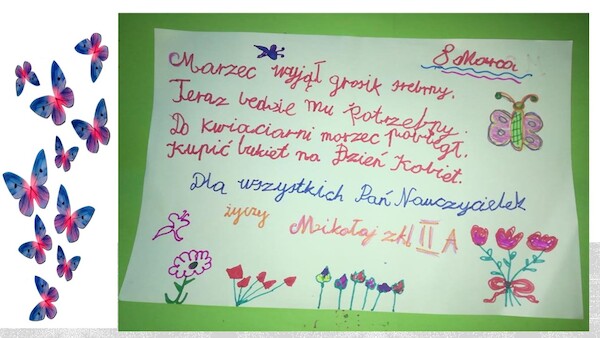 8 Marca
Marzec wyjął grosik srebrny.
Teraz będzie mu potrzebny.
Do kwiaciarni marzec pobiegł,
kupić bukiet na Dzień Kobiet.
Dla wszystkich Pań Nauczycielek
życzy
Mikołaj z kl II A